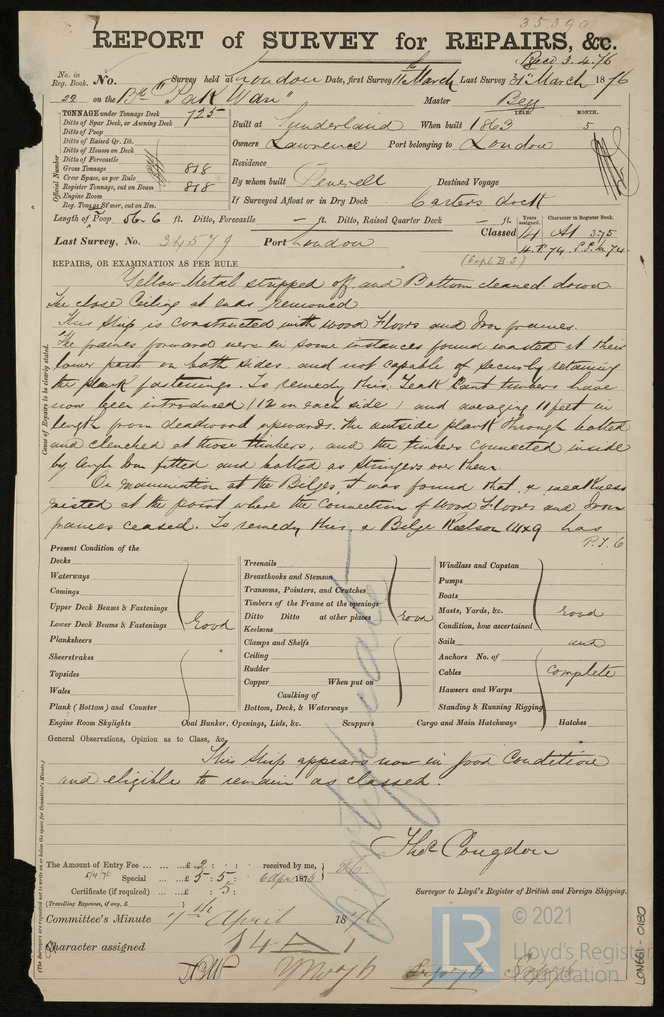 35390
REPORT of SURVEY for REPAIRS, &c.
Recd 3.4.76
No. in Reg. Book. No. Survey held at London Date, first Survey 11th March Last Survey 31st March 1876
22 on the Bk "Pak Wan" Master Begg
TONNAGE under Tonnage Deck 725
Ditto of Spar Deck, or Awning Deck
Ditto of Poop
Ditto of Raised Qr. Dk.
Ditto of Houses on Deck
Ditto of Forecastle
Gross Tonnage 818
Crew Space, as per Rule
Register Tonnage, cut on Beam 818
Engine Room
Reg. Ton. as St'mer, cut on Bm.
Official Number
YEAR. MONTH.
Built at Sunderland When built 1863 5
Owners Lawrence Port belonging to London
Residence
By whom built Peverell Destined Voyage
If Surveyed Afloat or in Dry Dock Carters dock
Length of Poop 56.6 ft. Ditto, Forecastle – ft. Ditto, Raised Quarter Deck – ft.
Years assigned. Character in Register Book.
Classed 14 A1 3.75
Last Survey, No. 34579 Port London
REPAIRS, OR EXAMINATION AS PER RULE
Yellow Metal stripped off and Bottom cleaned down
The close Ceiling at ends removed.
This Ship is constructed with wood Floors and Iron frames.
The frames forward were in some instances found wasted at their
lower part on both sides, and not capable of securely retaining
the plank fastenings. To remedy this, Teak Cant timbers have
now been introduced (12 on each side) and averaging 11 feet in
length from deadwood upwards. The outside plank through bolted
and clenched at those timbers, and the timbers connected inside
by Angle Iron fitted and bolted as Stringers over them.
On examination at the Bilges, it was found that a weakness
existed at the point where the connection of Wood Floors and Iron
frames ceased. To remedy this, a Bilge Keelson 14x9 has
P.T.O
Cause of Repairs to be clearly stated.
Present Condition of the
Decks
Waterways
Comings
Upper Deck Beams & Fastenings
Lower Deck Beams & Fastenings Good
Planksheers
Sheerstrakes
Topsides
Wales
Plank (Bottom) and Counter
Engine Room Skylights
Treenails
Breasthooks and Stemson
Transoms, Pointers, and Crutches
Timbers of the Frame at the openings
Ditto Ditto at other places Good
Keelsons
Clamps and Shelfs
Ceiling
Rudder
Copper When put on
Caulking of
Bottom, Deck, & Waterways
Coal Bunker, Openings, Lids, &c. Scuppers
Windlass and Capstan
Pumps
Boats
Masts, Yards, &c. Good
Condition, how ascertained
Sails and
Anchors No. of
Cables complete
Hawsers and Warps
Standing & Running Rigging
Cargo and Main Hatchways Hatches
General Observations, Opinion as to Class, &c.
This Ship appears now in good Condition
and eligible to remain as classed.
Certificate
Thos Congdon
The Amount of Entry Fee £ 2 : : received by me,
5/4/76 Special £ 5 : 5 : 6 Apr 1876
Certificate (if required) £ : 5 :
(Travelling Expenses, if any, £ )
Surveyor to Lloyd's Register of British and Foreign Shipping.
Committee's Minute 7th April 1876
Character assigned 14 A 1
(The Surveyors are requested not to write on or below the space for Committee's Minute.)
© 2021
LR
Lloyd's Register
Foundation
LON661-0180